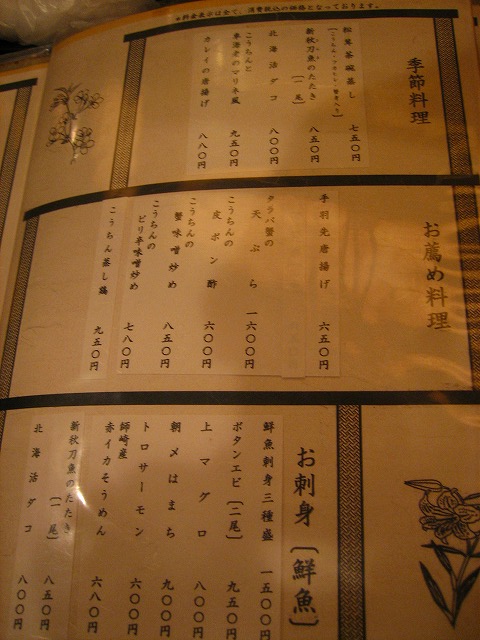 ※料金表示は全て、消費税込の価格となっております。
季節料理
松茸茶碗蒸し 七五〇円
新秋刀魚のたたき
〔一尾〕 八五〇円
北海活ダコ 八〇〇円
こうちんと
東海そのマリネ風 九五〇円
カレイの唐揚げ 八八〇円
お薦め料理
手羽先唐揚げ 六五〇円
タラバ蟹の
天ぷら 一六〇〇円
こうちんの
皮ポン酢 六〇〇円
こうちんの
蟹味噌炒め 八五〇円
こうちんの
ピリ辛味噌炒め 七八〇円
こうちん蒸し鶏 九五〇円
お刺身〔鮮魚〕
鮮魚刺身三種盛 一五〇〇円
ボタンエビ〔二尾〕 九五〇円
上マグロ 八〇〇円
朝〆はまち 九〇〇円
トロサーモン 六〇〇円
師崎産
赤イカそうめん 六八〇円
新秋刀魚のたたき
〔一尾〕 八五〇円
北海活ダコ 八〇〇円